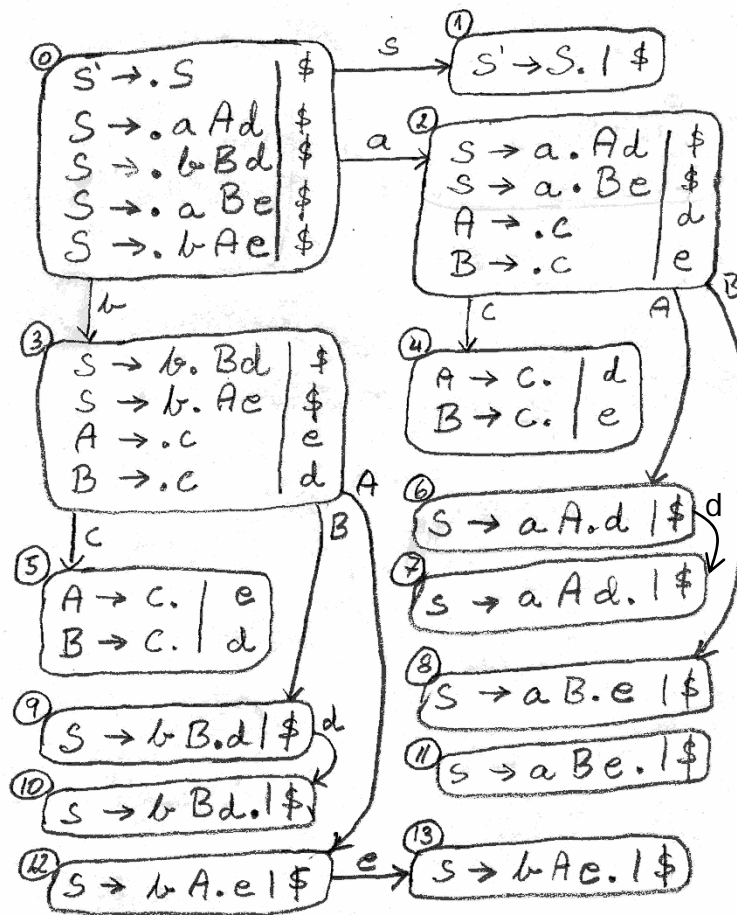 0
S' → . S | $
S → . a A d | $
S → . b B d | $
S → . a B e | $
S → . b A e | $
S
1
S' → S. | $
a
2
S → a . A d | $
S → a . B e | $
A → . c | d
B → . c | e
b
3
S → b . B d | $
S → b . A e | $
A → . c | e
B → . c | d
c
A
B
4
A → c. | d
B → c. | e
c
B
A
5
A → c. | e
B → c. | d
6
S → a A . d | $
d
7
S → a A d . | $
8
S → a B . e | $
9
S → b B . d | $
d
10
S → b B d . | $
11
S → a B e . | $
12
S → b A . e | $
e
13
S → b A e . | $